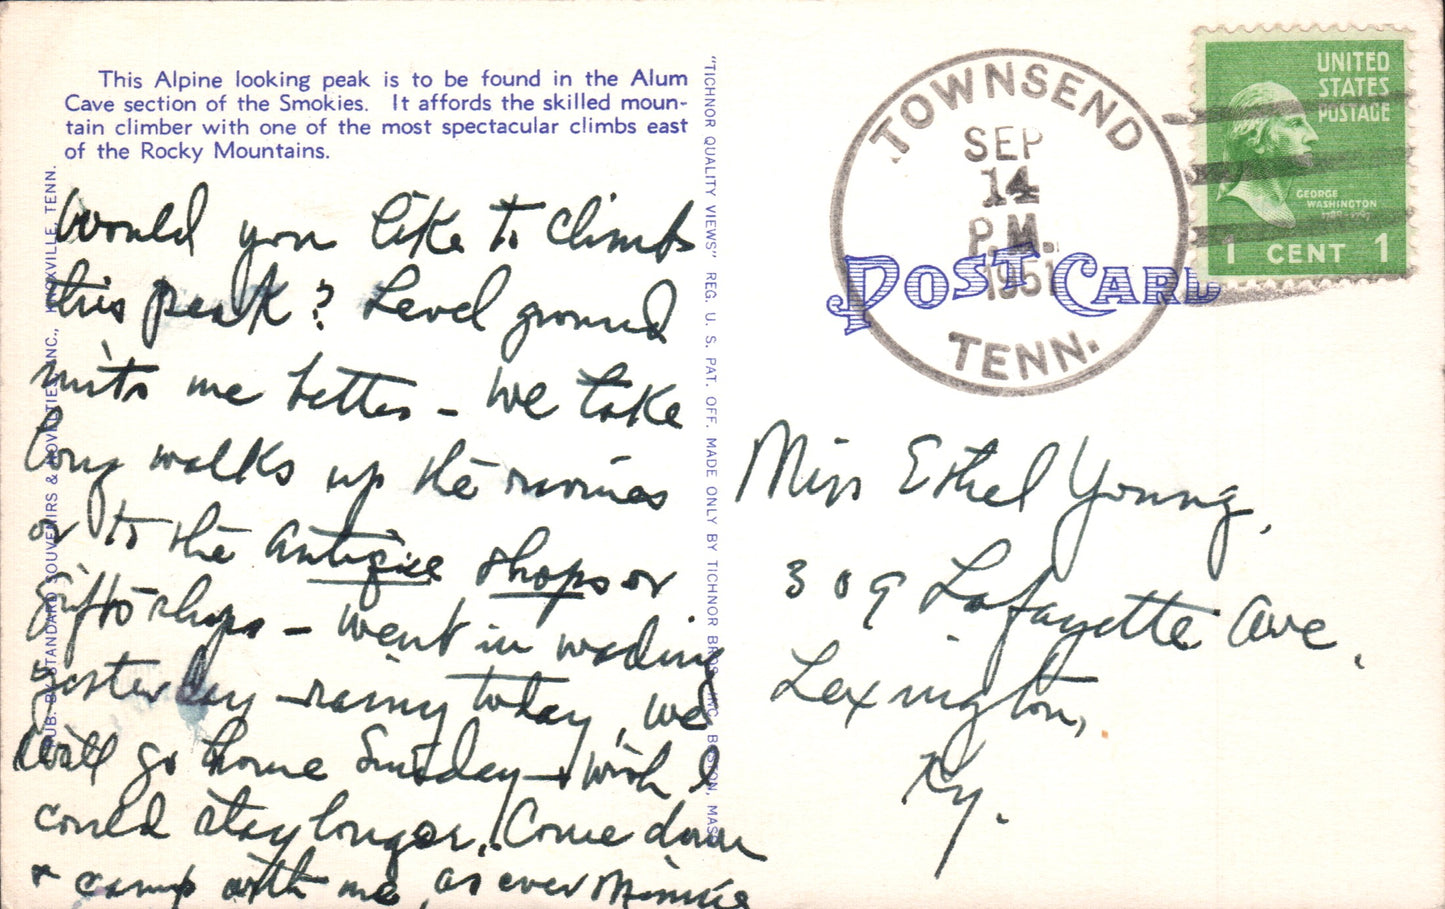 This Alpine looking peak is to be found in the Alum
Cave section of the Smokies. It affords the skilled moun-
tain climber with one of the most spectacular climbs east
of the Rocky Mountains.
Would you like to climb
this peak? Level ground
suits me better - We take
long walks up the ravines
or to the antique shops or
gift shops - went in wading
yesterday - rainy today, we
will go home Sunday - wish I
could stay longer. Come down
& camp with me, as ever Minnie
PUB. BY STANDARD SOUVENIRS & NOVELTIES, INC., KNOXVILLE, TENN.
"TICHNOR QUALITY VIEWS" REG. U. S. PAT. OFF. MADE ONLY BY TICHNOR BROS., INC., BOSTON, MASS.
TOWNSEND
SEP
14
P.M.
1951
TENN.
POST CARD
UNITED
STATES
POSTAGE
GEORGE
WASHINGTON
1789-1797
1 CENT 1
Miss Ethel Young,
309 Lafayette Ave.
Lexington,
Ky.